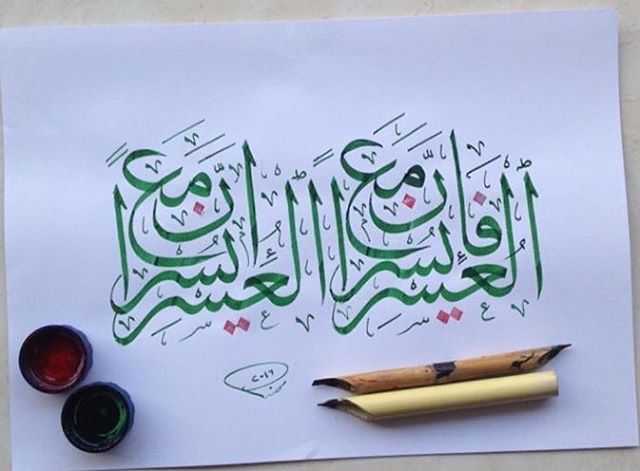 فَإِنَّ مَعَ الْعُسْرِ يُسْرًا
إِنَّ مَعَ الْعُسْرِ يُسْرًا
٢٠١٦